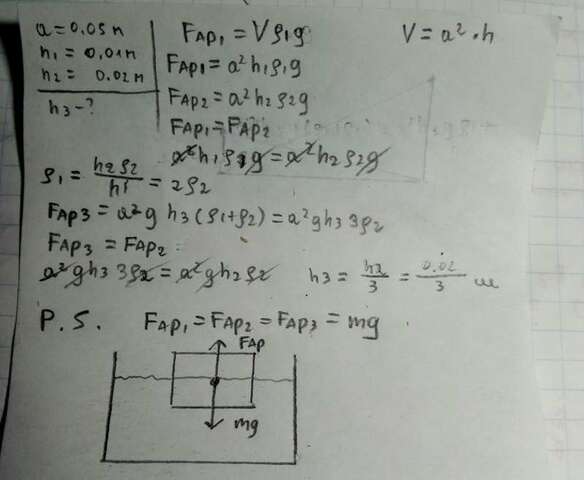 a = 0,05 м
h1 = 0,01 м
h2 = 0.02 м
h3 - ?
FAp1 = Vρ1g
V = a² · h
FAp1 = a²h1ρ1g
FAp2 = a²h2ρ2g
FAp1 = FAp2
a²h1ρ1g = a²h2ρ2g
ρ1 = h2ρ2/h1 = 2ρ2
FAp3 = a²g h3 (ρ1+ρ2) = a²gh3 3ρ2
FAp3 = FAp2
a²gh3 3ρ2 = a²gh2ρ2
h3 = h2/3 = 0.02/3 м
P.S. FAp1 = FAp2 = FAp3 = mg
FAp
mg